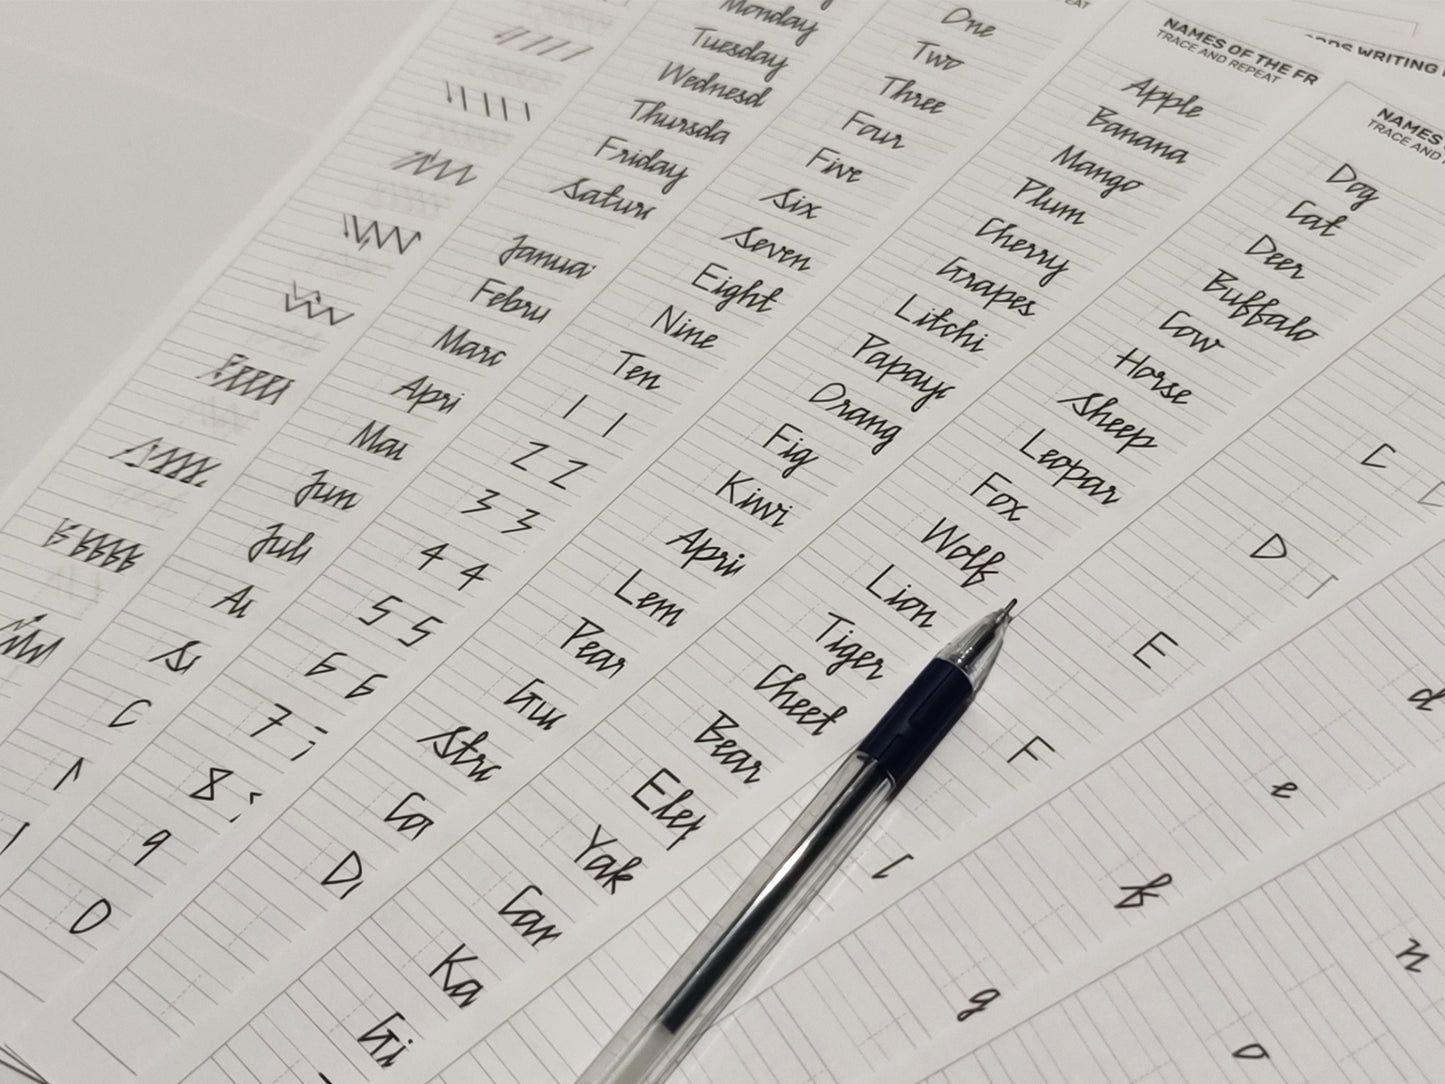 Monday
Tuesday
Wednesd
Thursda
Friday
Satur
Januar
Febru
Marc
Apri
Ma
Jun
Jul
A
S
C
One
Two
Three
Four
Five
Six
Seven
Eight
Nine
Ten
1 1
2 2
3 3
4 4
5 5
6 6
7 7
8
9
0
EAT
NAMES OF THE FR
TRACE AND REPEAT
Apple
Banana
Mango
Plum
Cherry
Grapes
Litchi
Papay
Orang
Fig
Kiwi
Apri
Lem
Pear
Gu
Stra
Ca
D
ORDS WRITING
NAMES
TRACE AND
Dog
Cat
Deer
Buffalo
Cow
Horse
Sheep
Leopar
Fox
Wolf
Lion
Tiger
Cheet
Bear
Elep
Yak
Cam
Ka
Gi
C
D
E
F
d
e
f
g
n
o